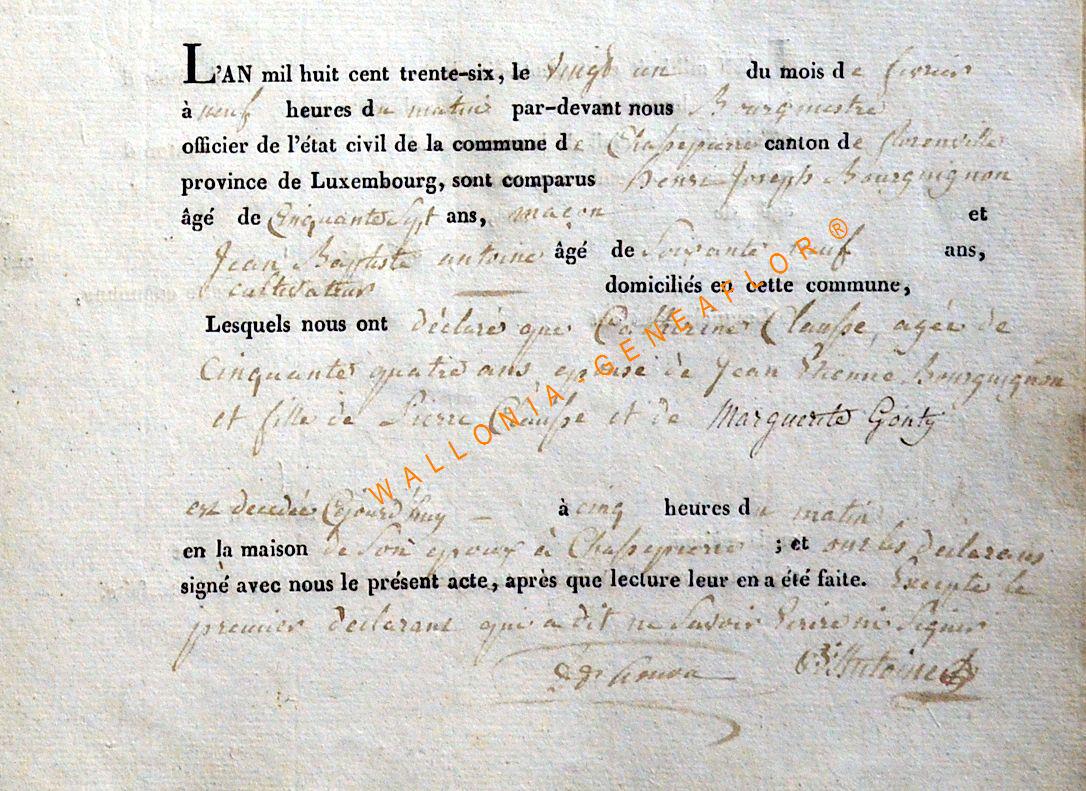 L'AN mil huit cent trente-six, le vingt un du mois de fevrier
à neuf heures du matin par-devant nous Bourgmestre
officier de l'état civil de la commune de Chassepierre canton de florenville
province de Luxembourg, sont comparus henri Joseph Bourguignon
âgé de Cinquante Sept ans, maçon et
Jean Baptiste antoine âgé de Soixante neuf ans,
cultivateur domiciliés en cette commune,
Lesquels nous ont déclaré que Catherine Clausse, agée de
Cinquante quatre ans epouse de Jean Etienne Bourguignon
et fille de Pierre Clausse et de Marguerite Gonty
est décédée Cejourd'huy à cinq heures du matin
en la maison de Son epoux à Chassepierre ; et ont les déclarans
signé avec nous le présent acte, après que lecture leur en a été faite. Excepté le
premier declarant qui a dit ne Savoir Ecrire ni Signer
Antoine
WALLONIA-GENEAFLOR®